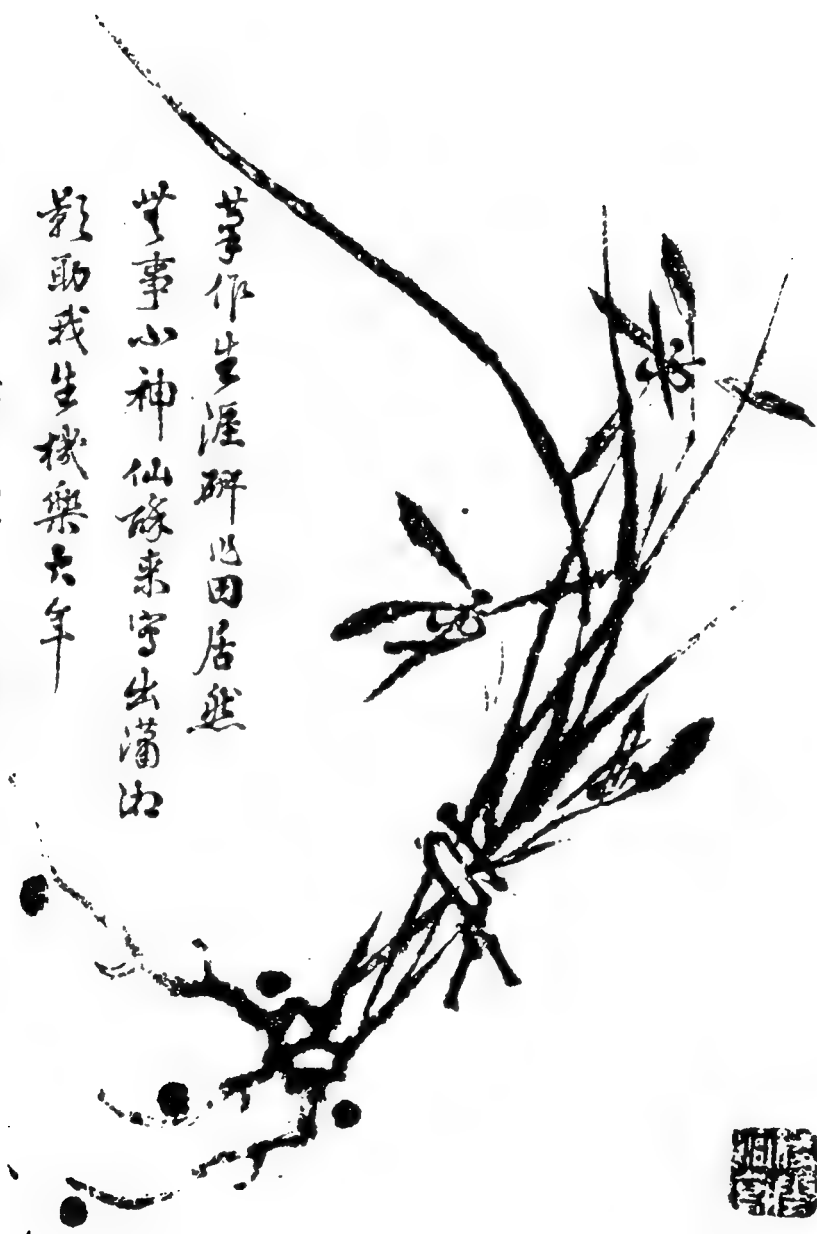 筆作生涯研田居然
無事小神仙醉来寫出瀟湘
影助我生機樂大年